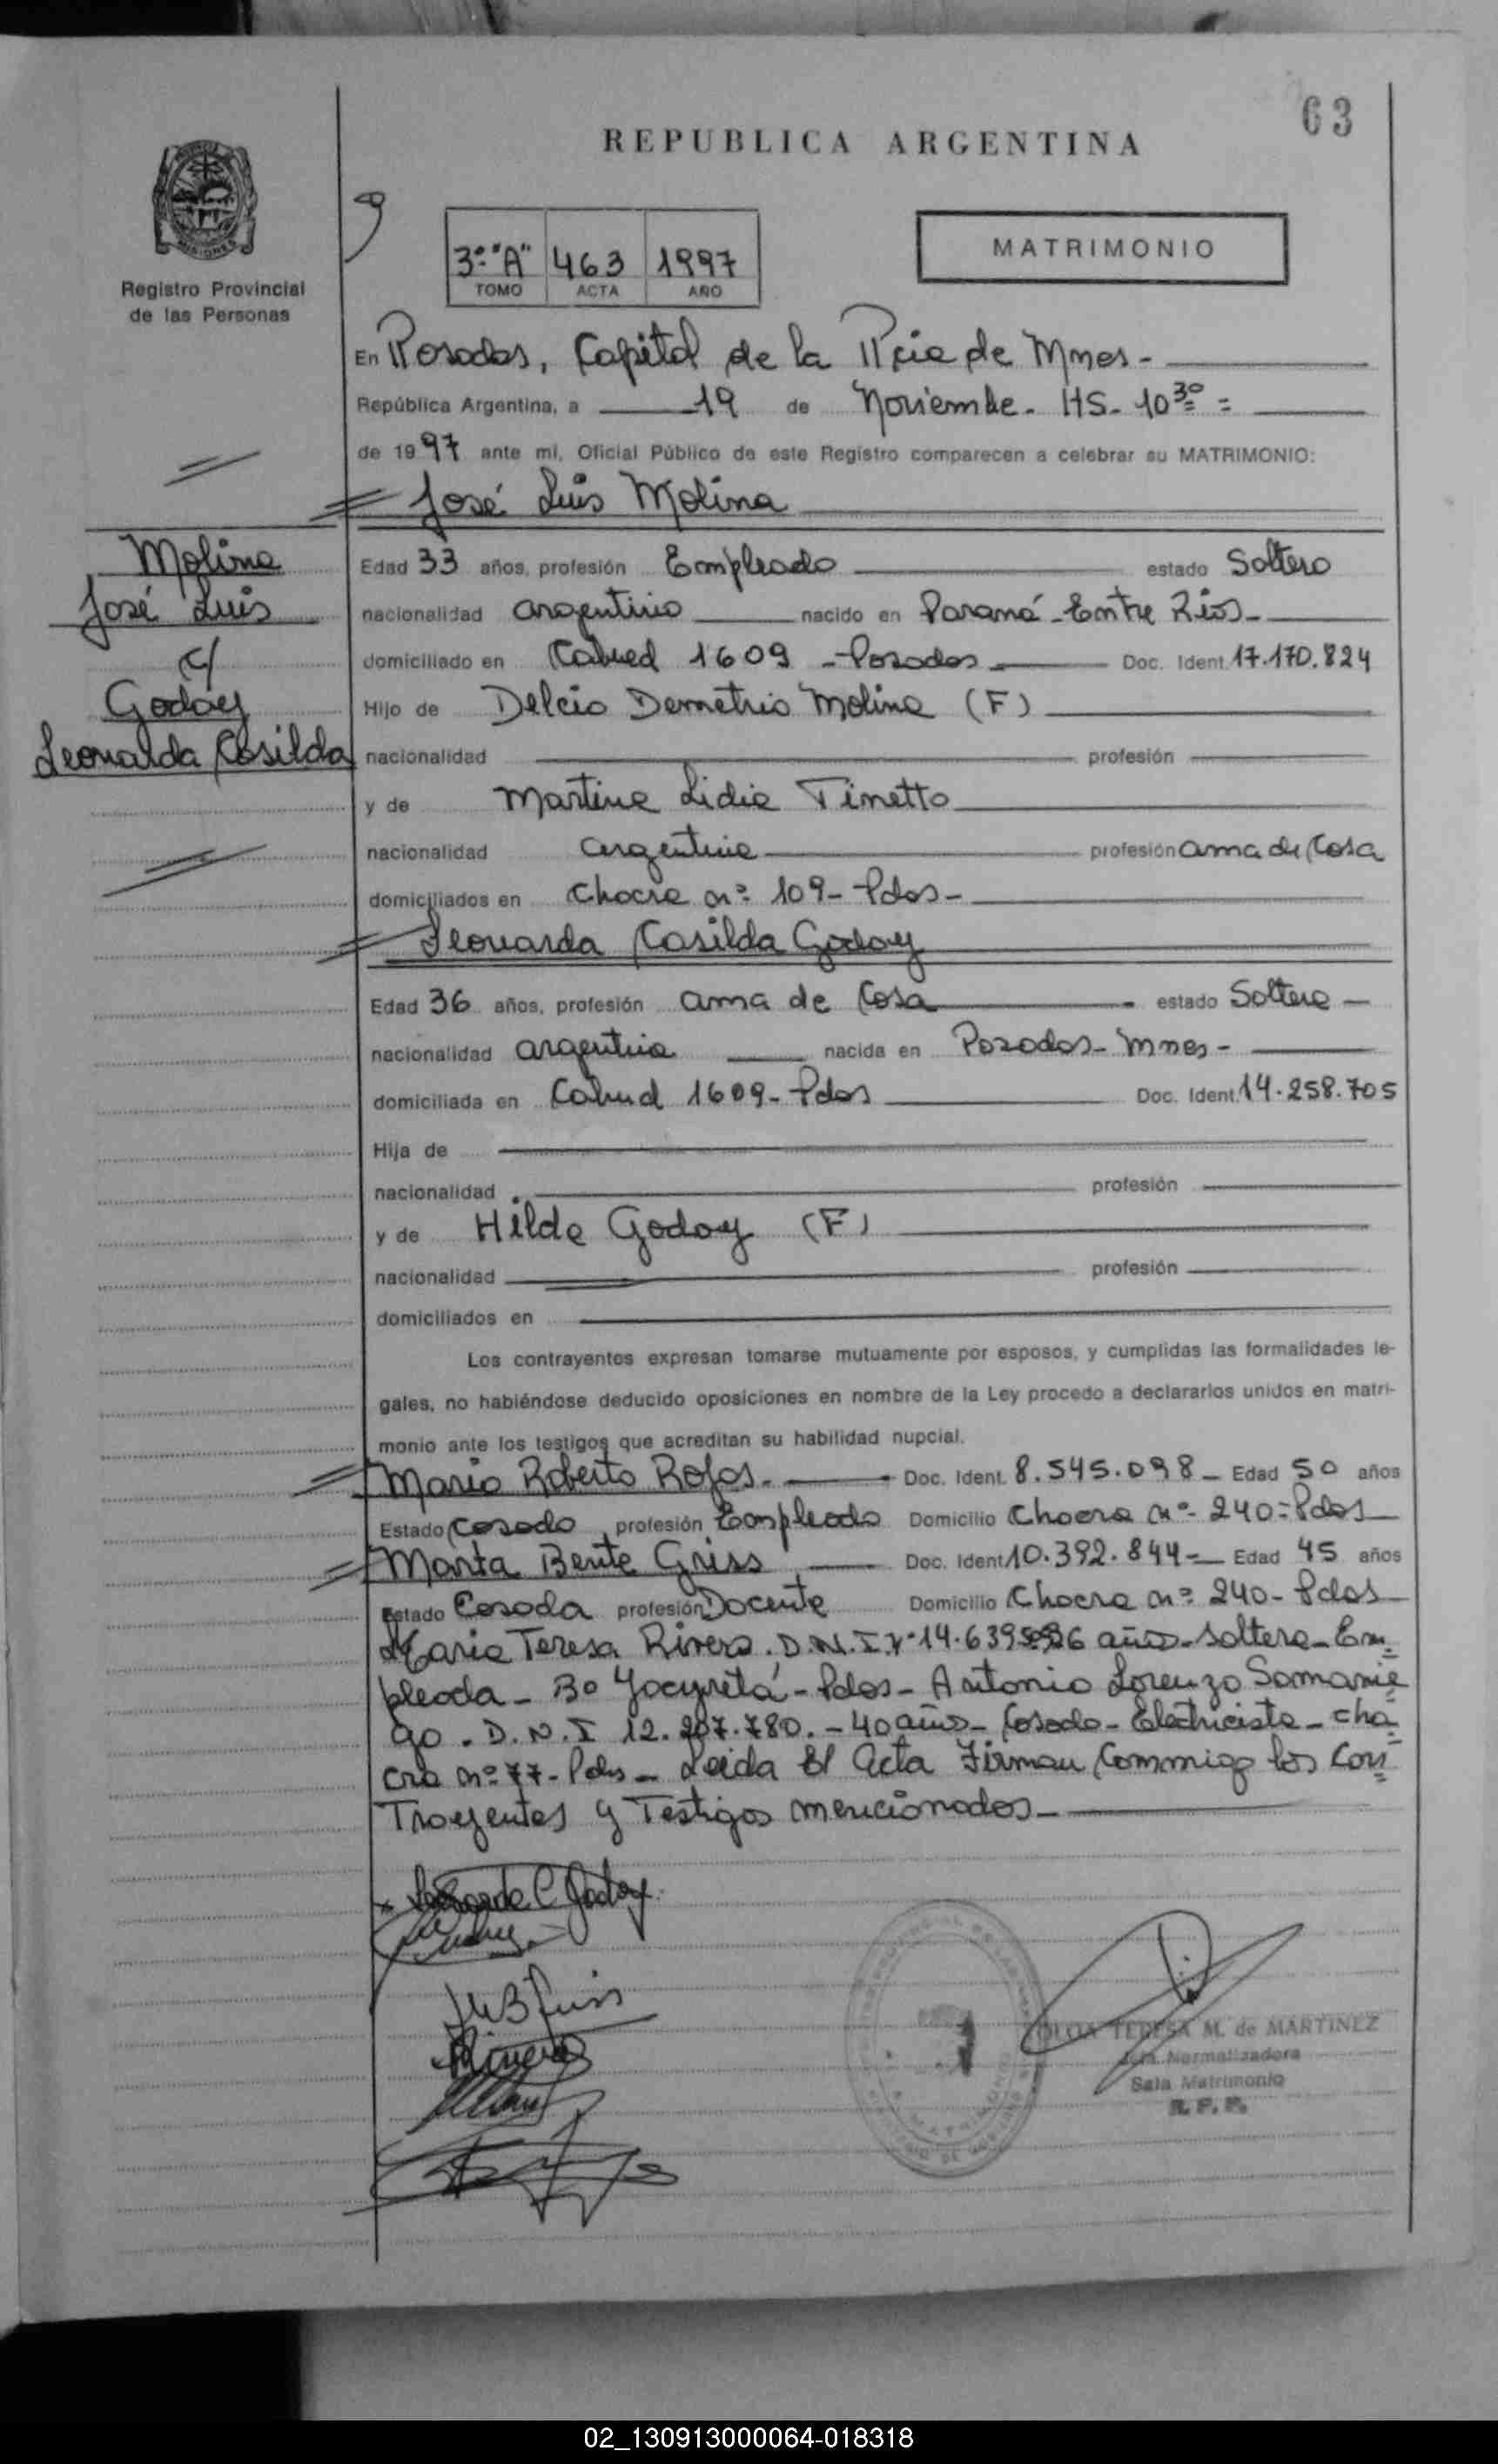 63
REPUBLICA ARGENTINA
MISIONES
Registro Provincial
de las Personas
3º "A" 463 1997
TOMO ACTA AÑO
MATRIMONIO
En Posadas, Capital de la Pcia de Mnes-
República Argentina, a 19 de Noviembre. HS. 10³⁰ =
de 1997 ante mí, Oficial Público de este Registro comparecen a celebrar su MATRIMONIO:
José Luis Molina
Molina
José Luis
c/
Godoy
Leonarda Casilda
Edad 33 años, profesión Empleado estado Soltero
nacionalidad argentino nacido en Paraná - Entre Ríos-
domiciliado en Cabred 1609 - Posadas Doc. Ident. 17.170.824
Hijo de Delcio Demetrio Molina (F)
nacionalidad profesión
y de Martina Lidia Timetto
nacionalidad argentina profesión ama de Casa
domiciliados en Chacra nº 109 - Pdas-
Leonarda Casilda Godoy
Edad 36 años, profesión ama de Casa estado Soltera
nacionalidad argentina nacida en Posadas - Mnes -
domiciliada en Cabred 1609 - Pdas Doc. Ident. 14.258.705
Hija de
nacionalidad profesión
y de Hilda Godoy (F)
nacionalidad profesión
domiciliados en
Los contrayentes expresan tomarse mutuamente por esposos, y cumplidas las formalidades le-
gales, no habiéndose deducido oposiciones en nombre de la Ley procedo a declararlos unidos en matri-
monio ante los testigos que acreditan su habilidad nupcial.
Mario Roberto Rojas. Doc. Ident. 8.545.098 - Edad 50 años
Estado Casado profesión Empleado Domicilio Chacra nº 240 = Pdas
Marta Beute Griss Doc. Ident 10.392.844 - Edad 45 años
Estado Casada profesión Docente Domicilio Chacra nº 240 - Pdas
María Teresa Rivero. D.N.I. Nº 14.639. años - soltera - Em=
pleada - Bº Yacyretá - Pdas - Antonio Lorenzo Samanie=
go. D.N.I 12.207.780. - 40 años - Casado - Electricista - Cha=
cra nº 77 - Pdas - Leida El Acta Firman Conmigo los Con=
Trayentes y Testigos mencionados -
Leonarda C Godoy
OLGA TERESA M. de MARTINEZ
Normalizadora
Sala Matrimonio
R. P. P.
02_130913000064-018318